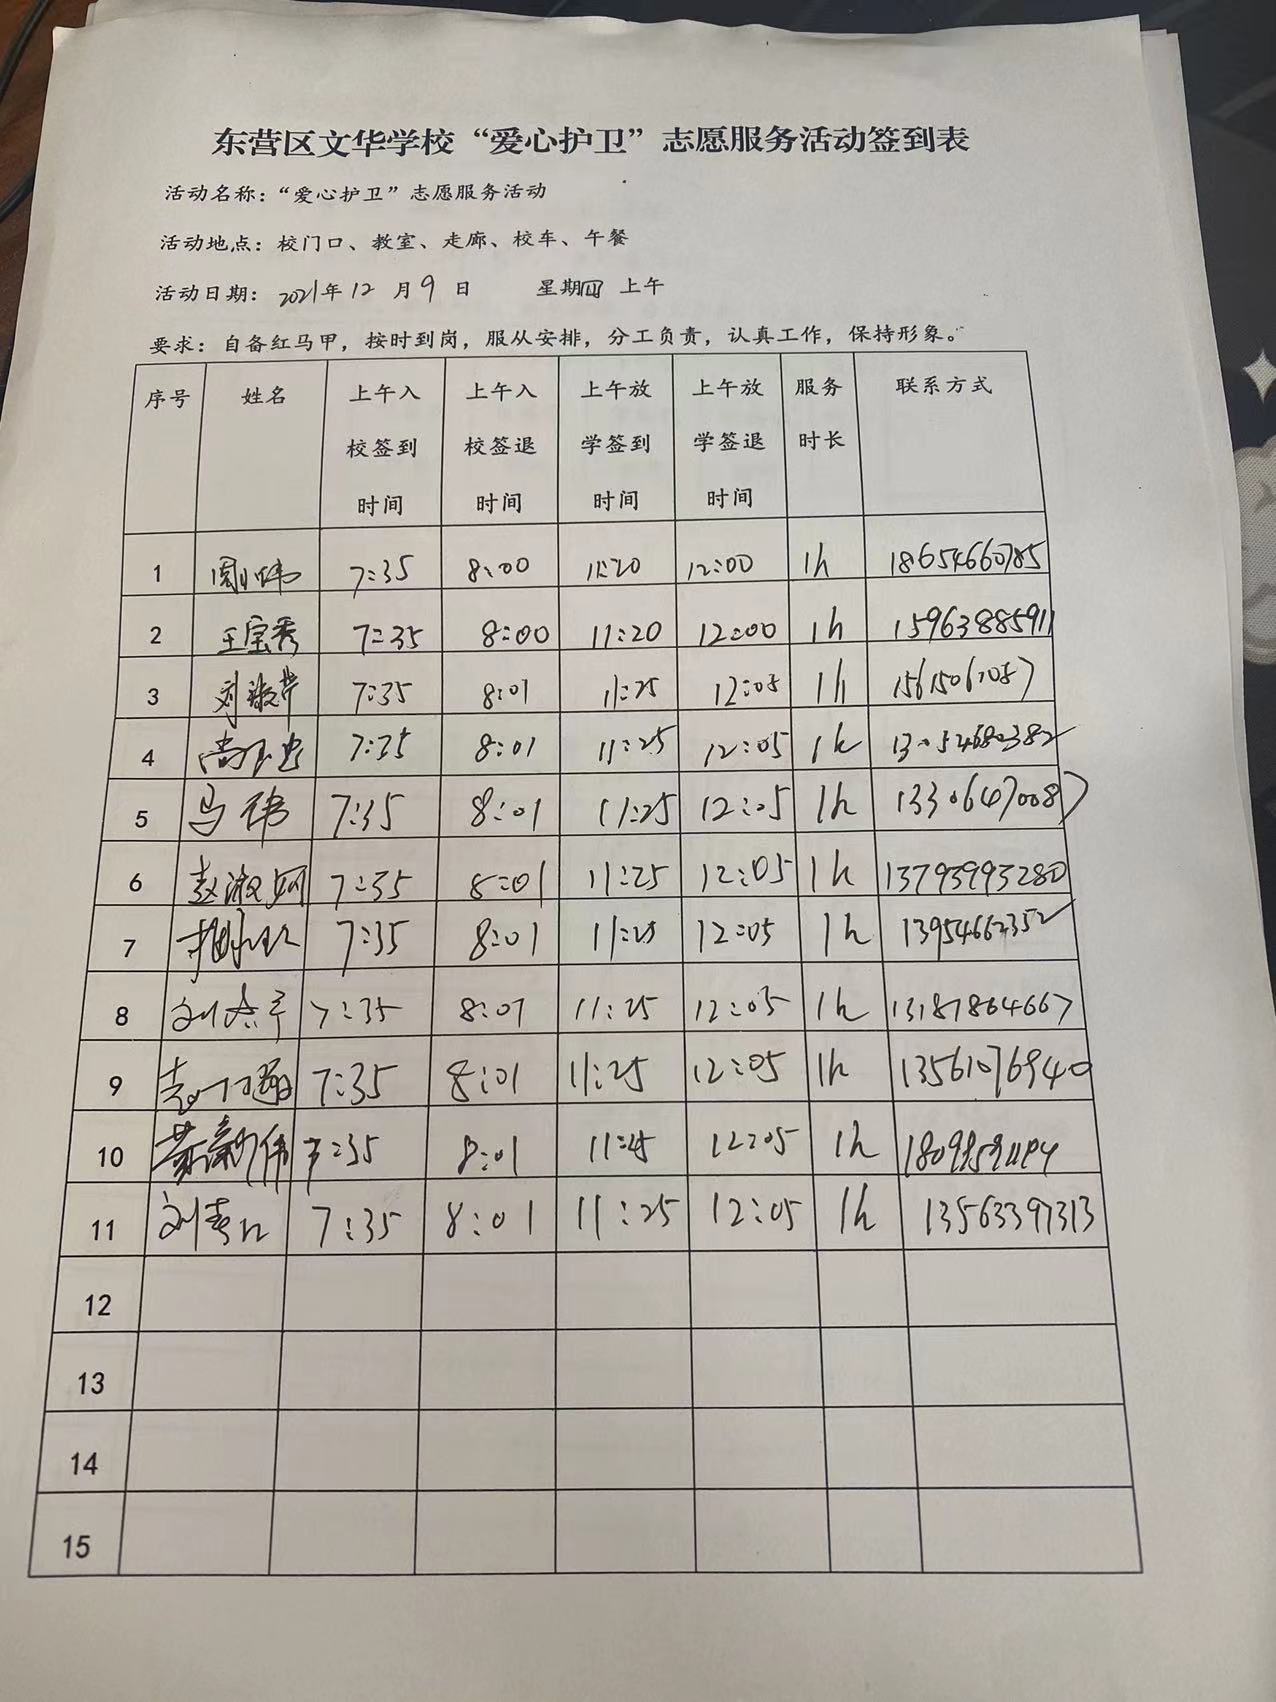 东营区文华学校“爱心护卫”志愿服务活动签到表
活动名称：“爱心护卫”志愿服务活动
活动地点：校门口、教室、走廊、校车、午餐
活动日期：2021年12月9日 星期四 上午
要求：自备红马甲，按时到岗，服从安排，分工负责，认真工作，保持形象。
序号 姓名 上午入校签到时间 上午入校签退时间 上午放学签到时间 上午放学签退时间 服务时长 联系方式
1 7:35 8:00 11:20 12:00 1h 18654660785
2 王宝秀 7:35 8:00 11:20 12:00 1h 15963885911
3 7:35 8:01 11:25 12:05 1h
4 7:35 8:01 11:25 12:05 1h 13054680382
5 马伟 7:35 8:01 11:25 12:05 1h 13306470087
6 7:35 8:01 11:25 12:05 1h 13793993280
7 7:35 8:01 11:25 12:05 1h 13954662352
8 7:35 8:01 11:25 12:05 1h 13181864667
9 7:35 8:01 11:25 12:05 1h 13561076940
10 7:35 8:01 11:25 12:05 1h
11 7:35 8:01 11:25 12:05 1h 13563397313
12
13
14
15